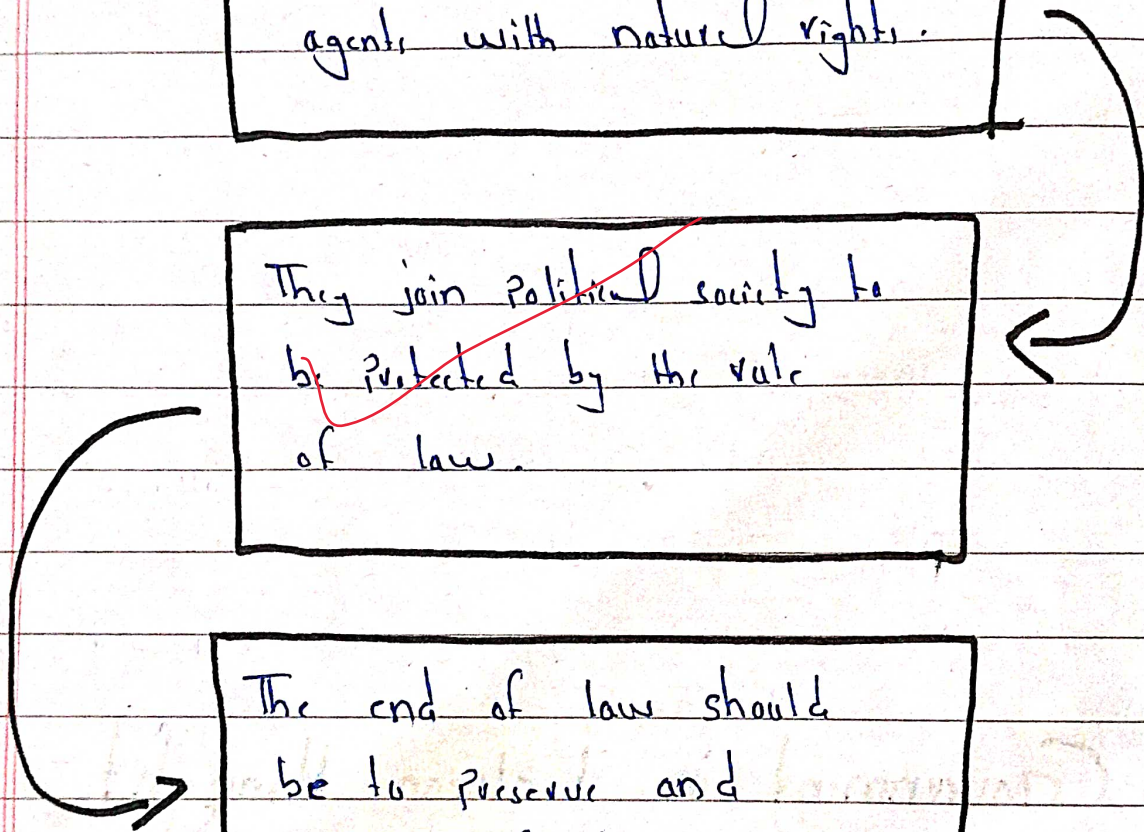 agents with natural rights.
They join political society to
be protected by the rule
of law.
The end of law should
be to preserve and